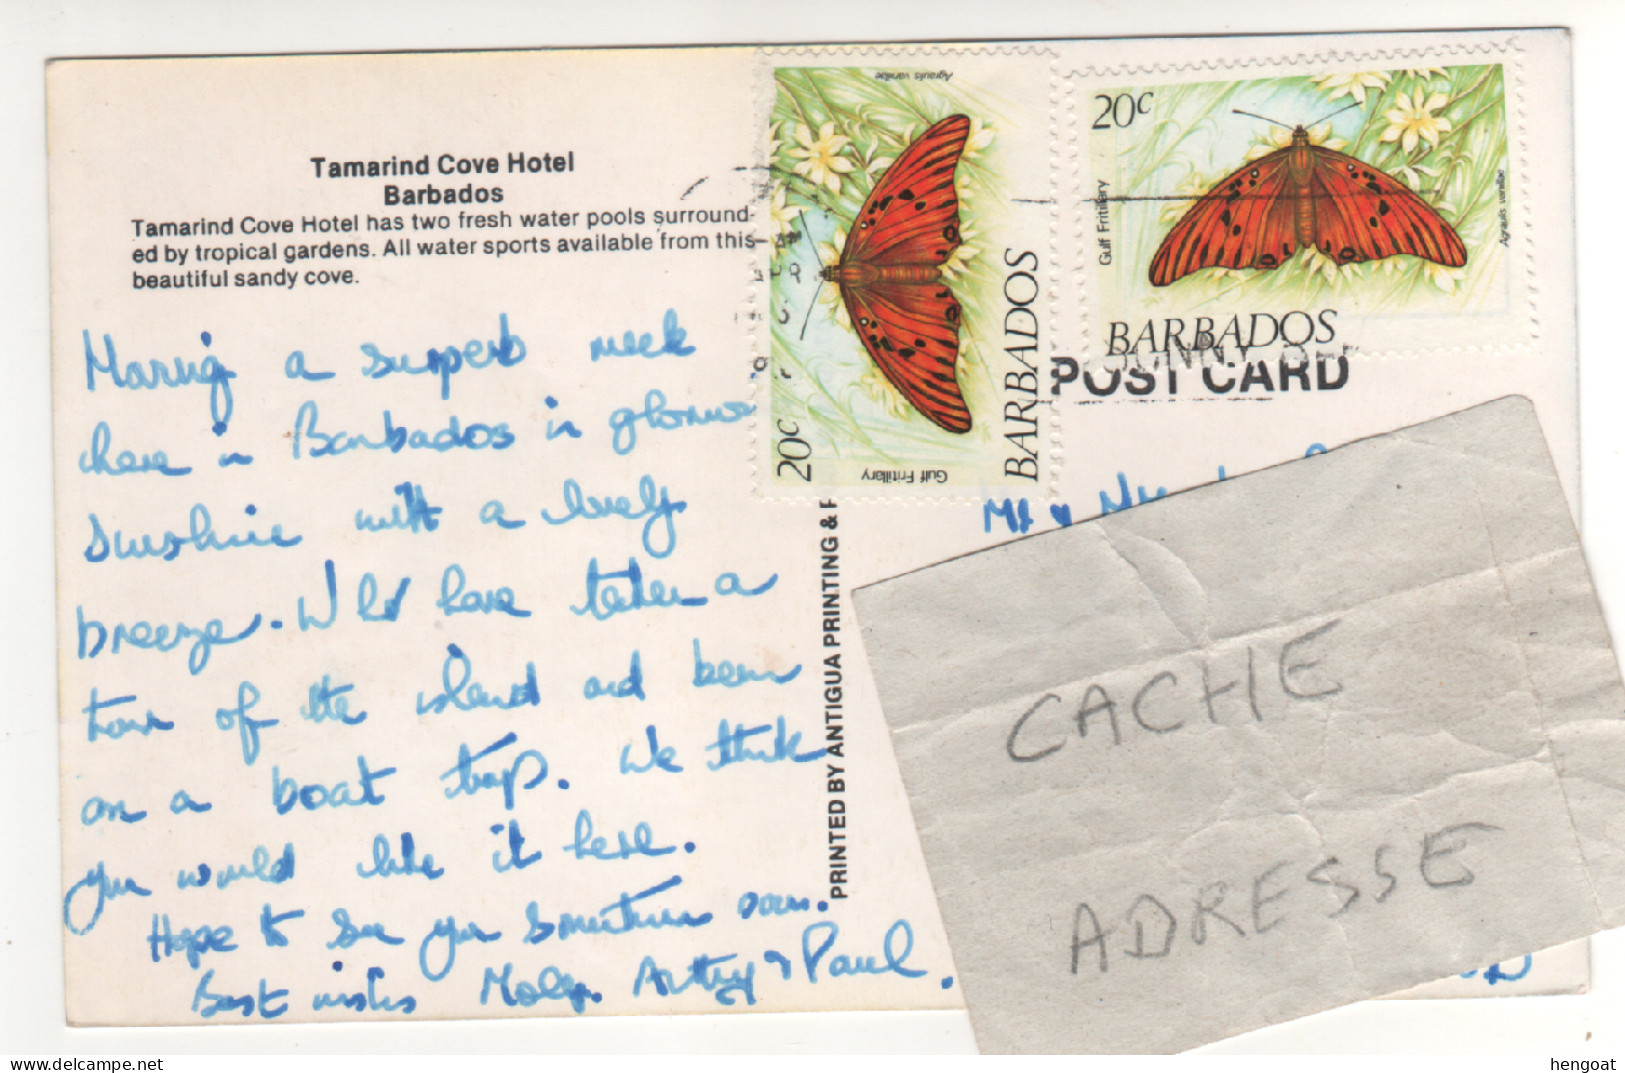 Tamarind Cove Hotel
Barbados
Tamarind Cove Hotel has two fresh water pools surround-
ed by tropical gardens. All water sports available from this
beautiful sandy cove.
Having a superb week
here in Barbados in
sunshine with a lovely
breeze. We have taken a
tour of the island and been
on a boat trip. We think
you would like it here.
Hope to see you sometime soon.
Best wishes Molly, & Paul.
Agraulis vanillae
20c
Gulf Fritillary
BARBADOS
20c
Gulf Fritillary
Agraulis vanillae
BARBADOS
APR
POST CARD
PRINTED BY ANTIGUA PRINTING &
Mr &
CACHE
ADRESSE
hengoat